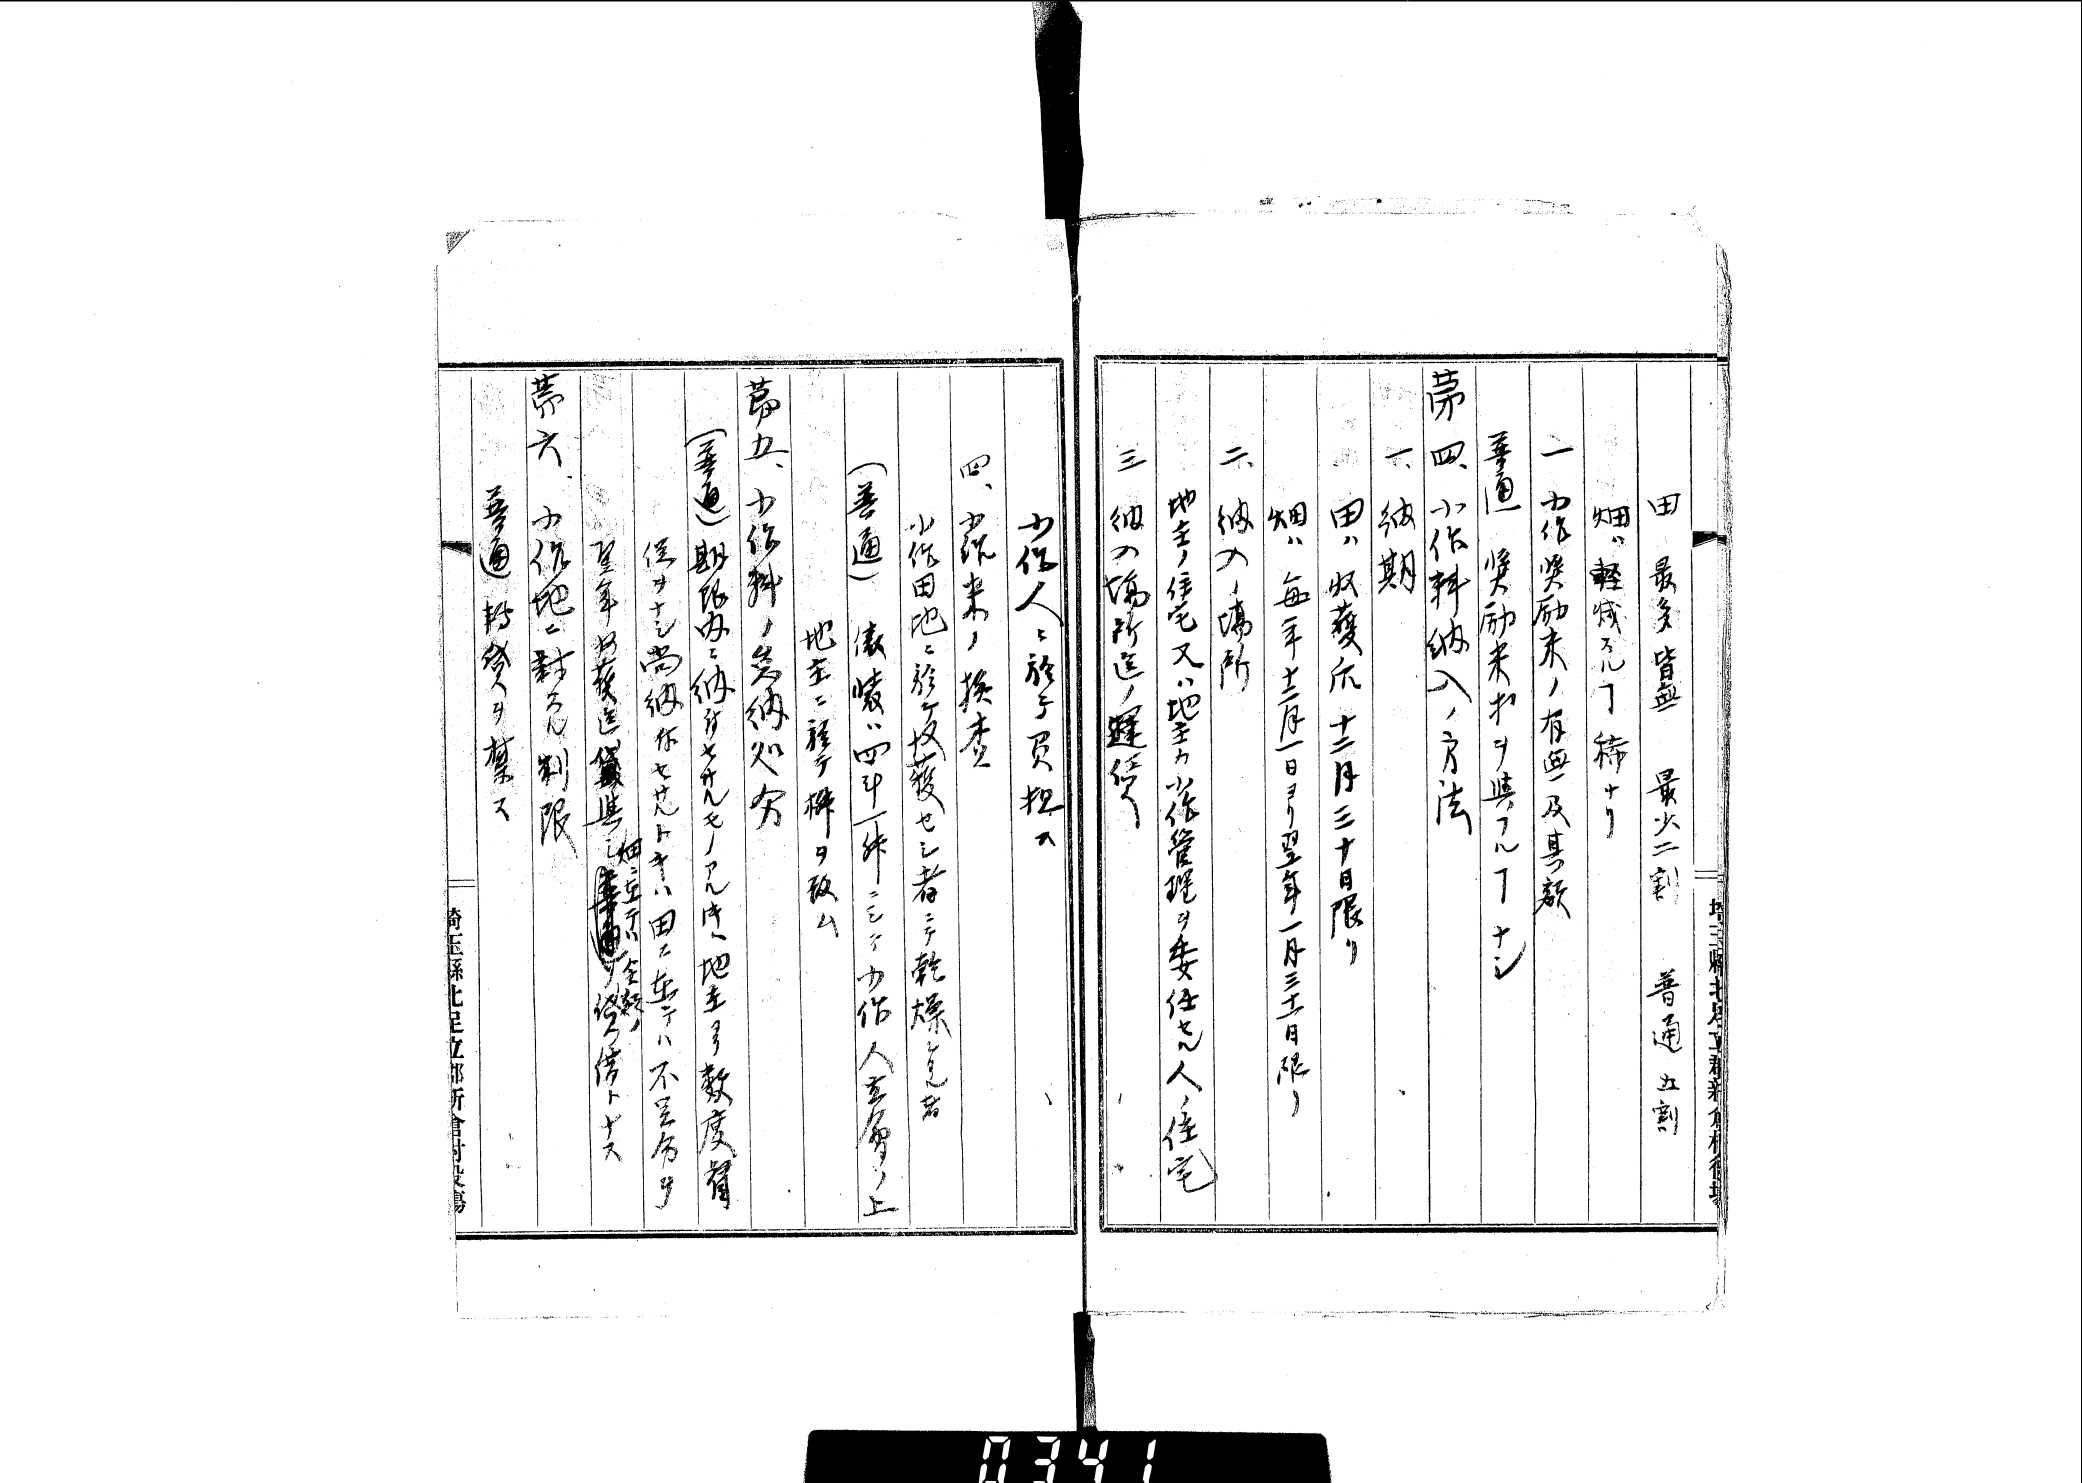 田 最多皆無 最少二割 普通五割
畑ハ軽減スルヿ稀ナリ
一 小作奨励米ノ有無及其額
普通 奨励米オヲ與フルヿナシ
第四、小作料納入ノ方法
一、納期
田ハ收穫后十二月三十日限リ
畑ハ毎年十二月一日ヨリ翌年一月三十一日限リ
二、納入ノ場所
地主ノ住宅又ハ地主カ小作管理ヲ委任セル人ノ住宅
三 納入場所迄ノ運賃
小作人ニ於テ負担ス
四、小作米ノ検査
小作田地ニ於テ收穫セシ者ニテ乾燥セル者
(普通) 俵装ハ四斗一升ニシテ小作人立會ノ上
地主ニ於テ桝目改ム
第五、小作料ノ怠納処分
(普通)期限内ニ納付セサルモノアルトキハ地主ヨリ数度督
促ヲナシ尚納付セサルトキハ田ニ在テハ不足分ヲ
翌年收穫迄貸與シ
畑ニ在テハ全額ノ
證ヲ借トナス
第六、小作地ニ対スル制限
普通 轉貸ヲ禁ス
埼玉縣北足立郡新倉村役場
埼玉縣北足立郡新倉村役場
0341